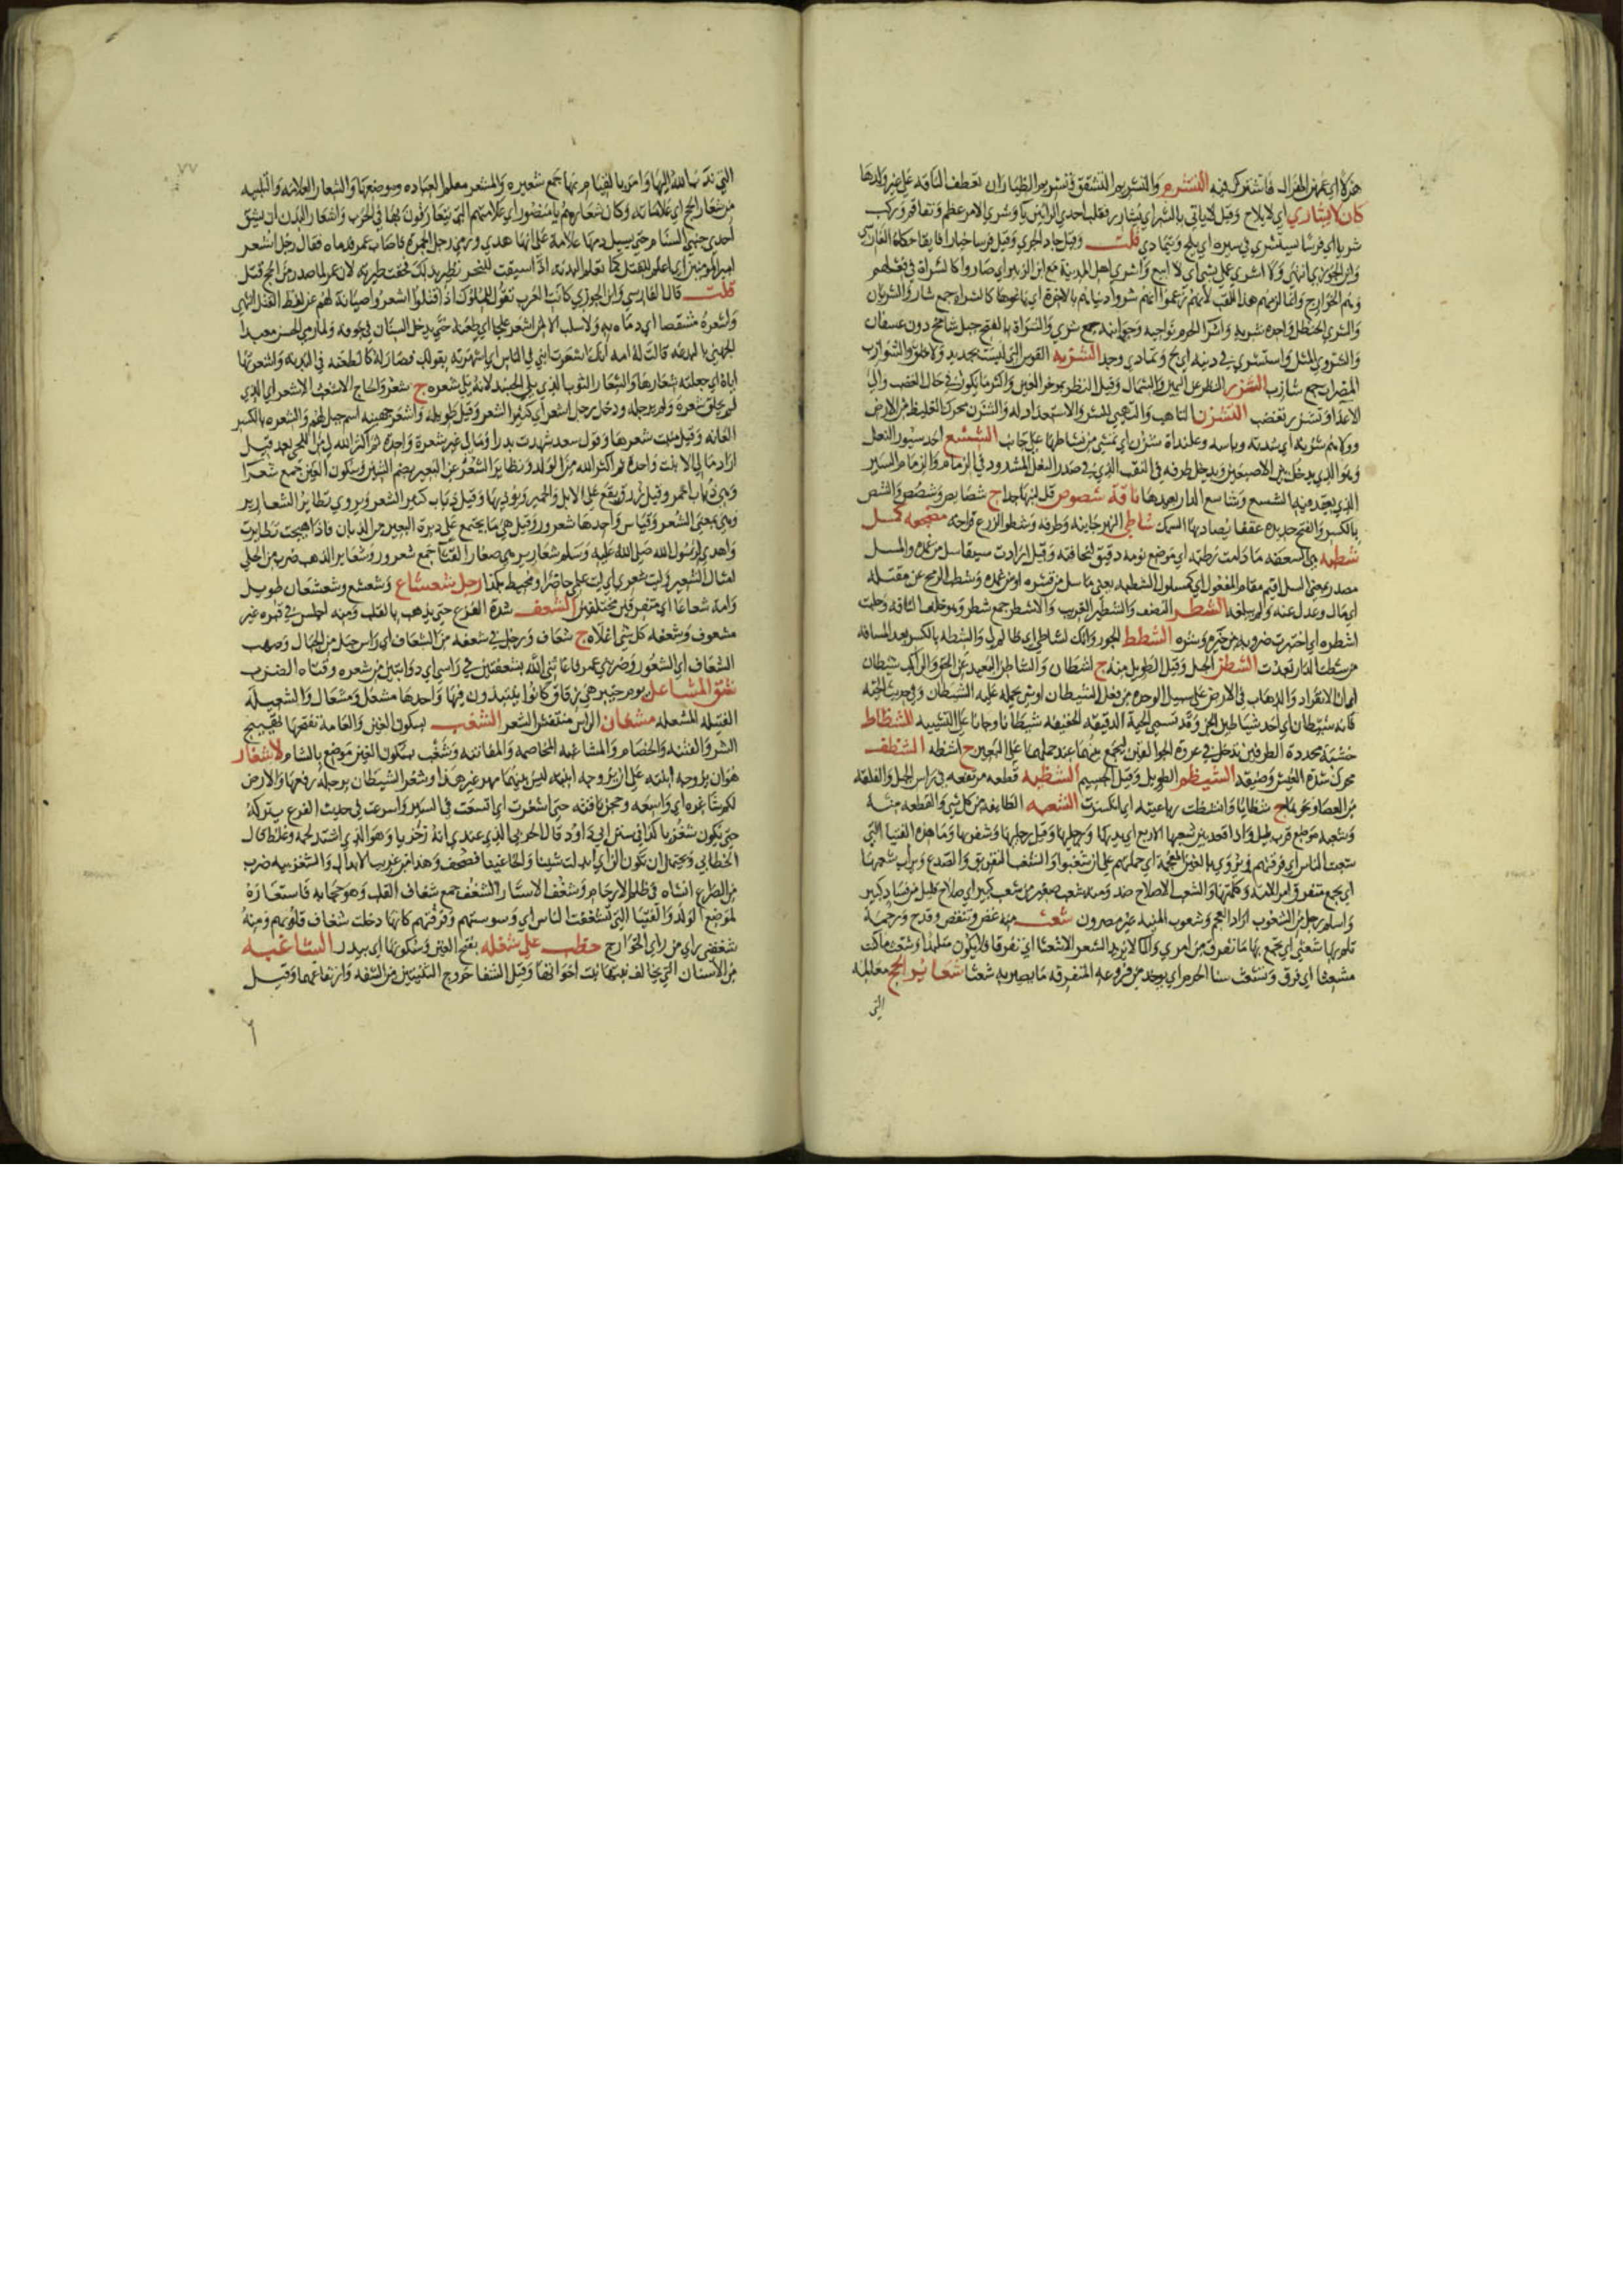 هزلا اي عمهن الهزال فاشترك فيه التشرم والتشريم التشقق في تشريم الظبا ان تعطف الناقه على غير ولدها
كان لا يشاري اي لا يلاج وقيل لا ياتي بالشر اي يشارر فقلب احدي الرائين يا وشري الامر عظم وتفاقم وركب
شريا اي فرسا يستشري في سيره اي يلج ويتمادي قلت وقيل جاد الجري وقيل فرسا خيارا فايقا حكاه الفارسي
وابن الجوزي انتهى ولا اشري عملي بشي اي لا ابيع واشري اهل المدينة مع ابن الزبير اي صاروا كالشراة في فعلهم
وهم الخوارج وانما لزمهم هذا اللقب لانهم زعموا انهم شروا دنياهم بالاخرة اي باعوها كالشراه جمع شار والشريان
والشري الحنظل واحده شريه واشرا الحرم نواحيه وجوانبه جمع شري والشراة بالفتح جبل شامخ دون عسفان
والشروي المثل واستشري في دينه اي لج وتمادي وجد الشزبه القوس التي ليست بجديد ولا خلق والشوازب
المضمرات جمع شازب الشزر النظر عن اليمين والشمال وقيل النظر بموخر العين واكثر ما يكون في حال الغضب والي
الاعدا وتشزر تغضب التشزن التاهب والتهيي للشي والاستعداد له والشزن محرك الغليظ من الارض
وولاهم شزنه اي شدته وباسه وعلنداة شزن اي تمشي من نشاطها على جانب الشسع احد سيور النعل
وهو الذي يدخل بين الاصبعين ويدخل طرفه في النقب الذي في صدر النعل المشدود في الزمام والزمام السير
الذي يعقد فيه الشسع وشاسع الدار بعيدها ناقة شصوص قل لبنها جدا ج شصايص وشصص والشص
بالكسر والفتح حديدة عقفا يصاد بها السمك شاطي النهر جانبه وطرفه وشطو الزرع فراخه مضجعه كمسل
شطبه هي السعفه ما دامت رطبه اي موضع نومه دقيق لنحافته وقيل ارادت سيفا سل من غمده والمسل
مصدر بمعنى السل اقيم مقام المفعول اي كمسلول الشطبه يعني ما سل من قشره او من غمده وشطب الرمح عن مقتله
اي مال وعدل عنه ولم يبلغه الشطر النصف والشطير الغريب والاشطر جمع شطر وهو خلف الناقه وحلبت
اشطره اي اختبرت ضروبه من خيره وشره الشطط الجور وانك لشاطي اي ظالم لي والشطه بالكسر بعد المسافه
من شطت الدار بعدت الشطن الحبل وقيل الطويل منه ج اشطان والشاطن البعيد عن الحق والراكب شيطان
اي ان الانفراد والذهاب في الارض على سبيل الوحدة من فعل الشيطان او شي يحمله عليه الشيطان وفي حديث الحية
فانه شيطان اي احد شياطين الجن وقد تسمي الحية الدقيقه الخفيفه شيطانا وجانا على التشبيه الشظاظ
خشبة محددة الطرفين تدخل في عروة الجوالقين ليجمع بينهما عند حملهما على البعير ج اشظه الشظف
محرك شدة العيش وضيقه الشيظم الطويل وقيل الجسيم الشظيه قطعه مرتفعه في راس الجبل والفلقه
من العصا ونحوها ج شظايا وانشظت رباعيته اي انكسرت الشعبه الطايفه من كل شي والقطعه منه
وشعبه موضع قرب يليل واذا قعد بين شعبها الاربع اي يديها ورجليها وقيل رجليها وشفريها وما هذه الفتيا التي
شعبت الناس اي فرقتهم ويروي بالغين المعجمة اي حملتهم على ان شغبوا والشعب التفريق والصدع ويراب شعبها
اي يجمع متفرق امر الامة وكلمتها والشعب الاصلاح ضد ومنه شعب صغير من شعب كبير اي صلاح قليل من فساد كبير
واسلم رجل من الشعوب اراد العجم وشعوب المنيه غير مصروف شعث منه غض وتنقص وقدح ورحمة
تلم بها شعثي اي يجمع بها ما تفرق من امري ولما لا يزيد الشعر الا شعثا اي تفرقا فلا يكون متلبدا وشعث ما كنت
مشعثا اي فرق وتشعث سنا الحرم اي يوخذ من فروعه المتفرقه ما يصير به شعثا شعائر الحج معالمه
التي
٧٧
التي ندب الله اليها وامر بالقيام بها جمع شعيره والمشعر معلم العباده وموضعها والشعار العلامه والتلبيه
من شعار الحج اي علاماته وكان شعارهم يا منصور اي علامتهم التي يتعارفون بها في الحرب واشعار البدن ان يشق
احدي جنبي السنام حتى يسيل دمها علامة على انها هدي ورمي رجل الجمره فاصاب عمر فدماه فقال رجل اشعر
امير المومنين اي اعلم للقتل كما تعلم البدنة اذا سيقت للنحر تطير بذلك فحقت طيرته لان عمر لما صدر من الحج قتل
قلت قال الفارسي وابن الجوزي كانت العرب تقول للملوك اذا قتلوا اشعروا صيانة لهم عن لفظ القتل انتهى
واشعره مشقصا اي دماه به ولا سلب الا لمن اشعر علجا اي طعنه حتى يدخل السنان في جوفه ولما رمي الحسن معبدا
الجهني بالبدعه قالت له امه انك اشعرت ابني في الناس اي شهرته بقولك فصار له كالطعنه في البدنه واشعرنها
اياه اي اجعلنه شعارها والشعار الثوب الذي يلي الجسد لانه يلي شعره ج شعر والحاج الاشعث الاشعر اي الذي
لم يحلق شعره ولم يرجله ودخل رجل اشعر اي كثير الشعر وقيل طويله واشعر جهينه اسم جبل لهم والشعره بالكسر
العانه وقيل منبت شعرها وقول سعد شهدت بدرا ومالي غير شعرة واحدة ثم اكثر الله لي من اللحي بعد قيل
اراد مالي الا بنت واحدة ثم اكثر الله من الولد وتطاير الشعر عن البعير بضم الشين وسكون العين جمع شعرا
وهي ذباب احمر وقيل ازرق يقع على الابل والحمير ويوذيها وقيل ذباب كثير الشعر ويروي تطاير الشعارير
وهي بمعنى الشعر وقياس واحدها شعرور وقيل هي ما يجتمع على دبرة البعير من الذبان فاذا هيجت تطايرت
واهدي لرسول الله صلى الله عليه وسلم شعارير هي صغار القثا جمع شعرور وشعاير الذهب ضرب من الحلي
امثال الشعير وليت شعري اي ليت علمي حاضر او محيط بكذا رجل شعشاع وشعشع وشعشعان طويل
وامة شعاعا اي متفرقين مختلفين الشعف شدة الفزع حتى يذهب بالقلب ومنه اجلس في قبره غير
مشعوف وشعفه كل شي اعلاه ج شعاف ورجل في شعفه من الشعاف اي راس جبل من الجبال وصهب
الشعاف اي الشعور وضربني عمر فاغاثني الله بشعفتين في راسي اي ذوابتين من شعره وقتاه الضرب
شق المشاعل يوم خيبر هي زقاق كانوا ينتبذون فيها واحدها مشعل ومشعال والشعيلة
الفتيله المشعله مشعان الراس منتفش الشعر الشغب بسكون الغين والعامة تفتحها تهييج
الشر والفتنه والخصام والمشاغبه المخاصمه والمفاتنه وشغب بسكون الغين موضع بالشام لا شغار
هو ان يزوجه ابنته على ان يزوجه ابنته ليس بينهما مهر غير هذا وشغر الشيطان برجله رفعها والارض
لكم شاغره اي واسعه وحجن ناقته حتى اشغرت اي اتسعت في السير واسرعت في حديث الفرع يتركه
حتى يكون شغزبا كذا في سنن ابي داود قال الحربي الذي عندي انه زخزبا وهو الذي اشتد لحمه وغلظ قال
الخطابي ويحتمل ان تكون الزاي ابدلت شينا والخا غينا فصحف وهذا من غريب الابدال والشغزبيه ضرب
من الصراع انشاه في ظلم الارحام وشغف الاستار الشغف جمع شغاف القلب وهو حجابه فاستعاره
لموضع الولد والفتيا التي تشغفت الناس اي وسوستهم وفرقتهم كانها دخلت شغاف قلوبهم ومنه
شغفني راي من راي الخوارج خطب على شغله بفتح الغين وسكونها اي بيدر الشاغيه
من الاسنان التي يخالف نبتها نبت اخواتها وقيل الشغا خروج الثنيتين من الشفه وارتفاعهما وقيل